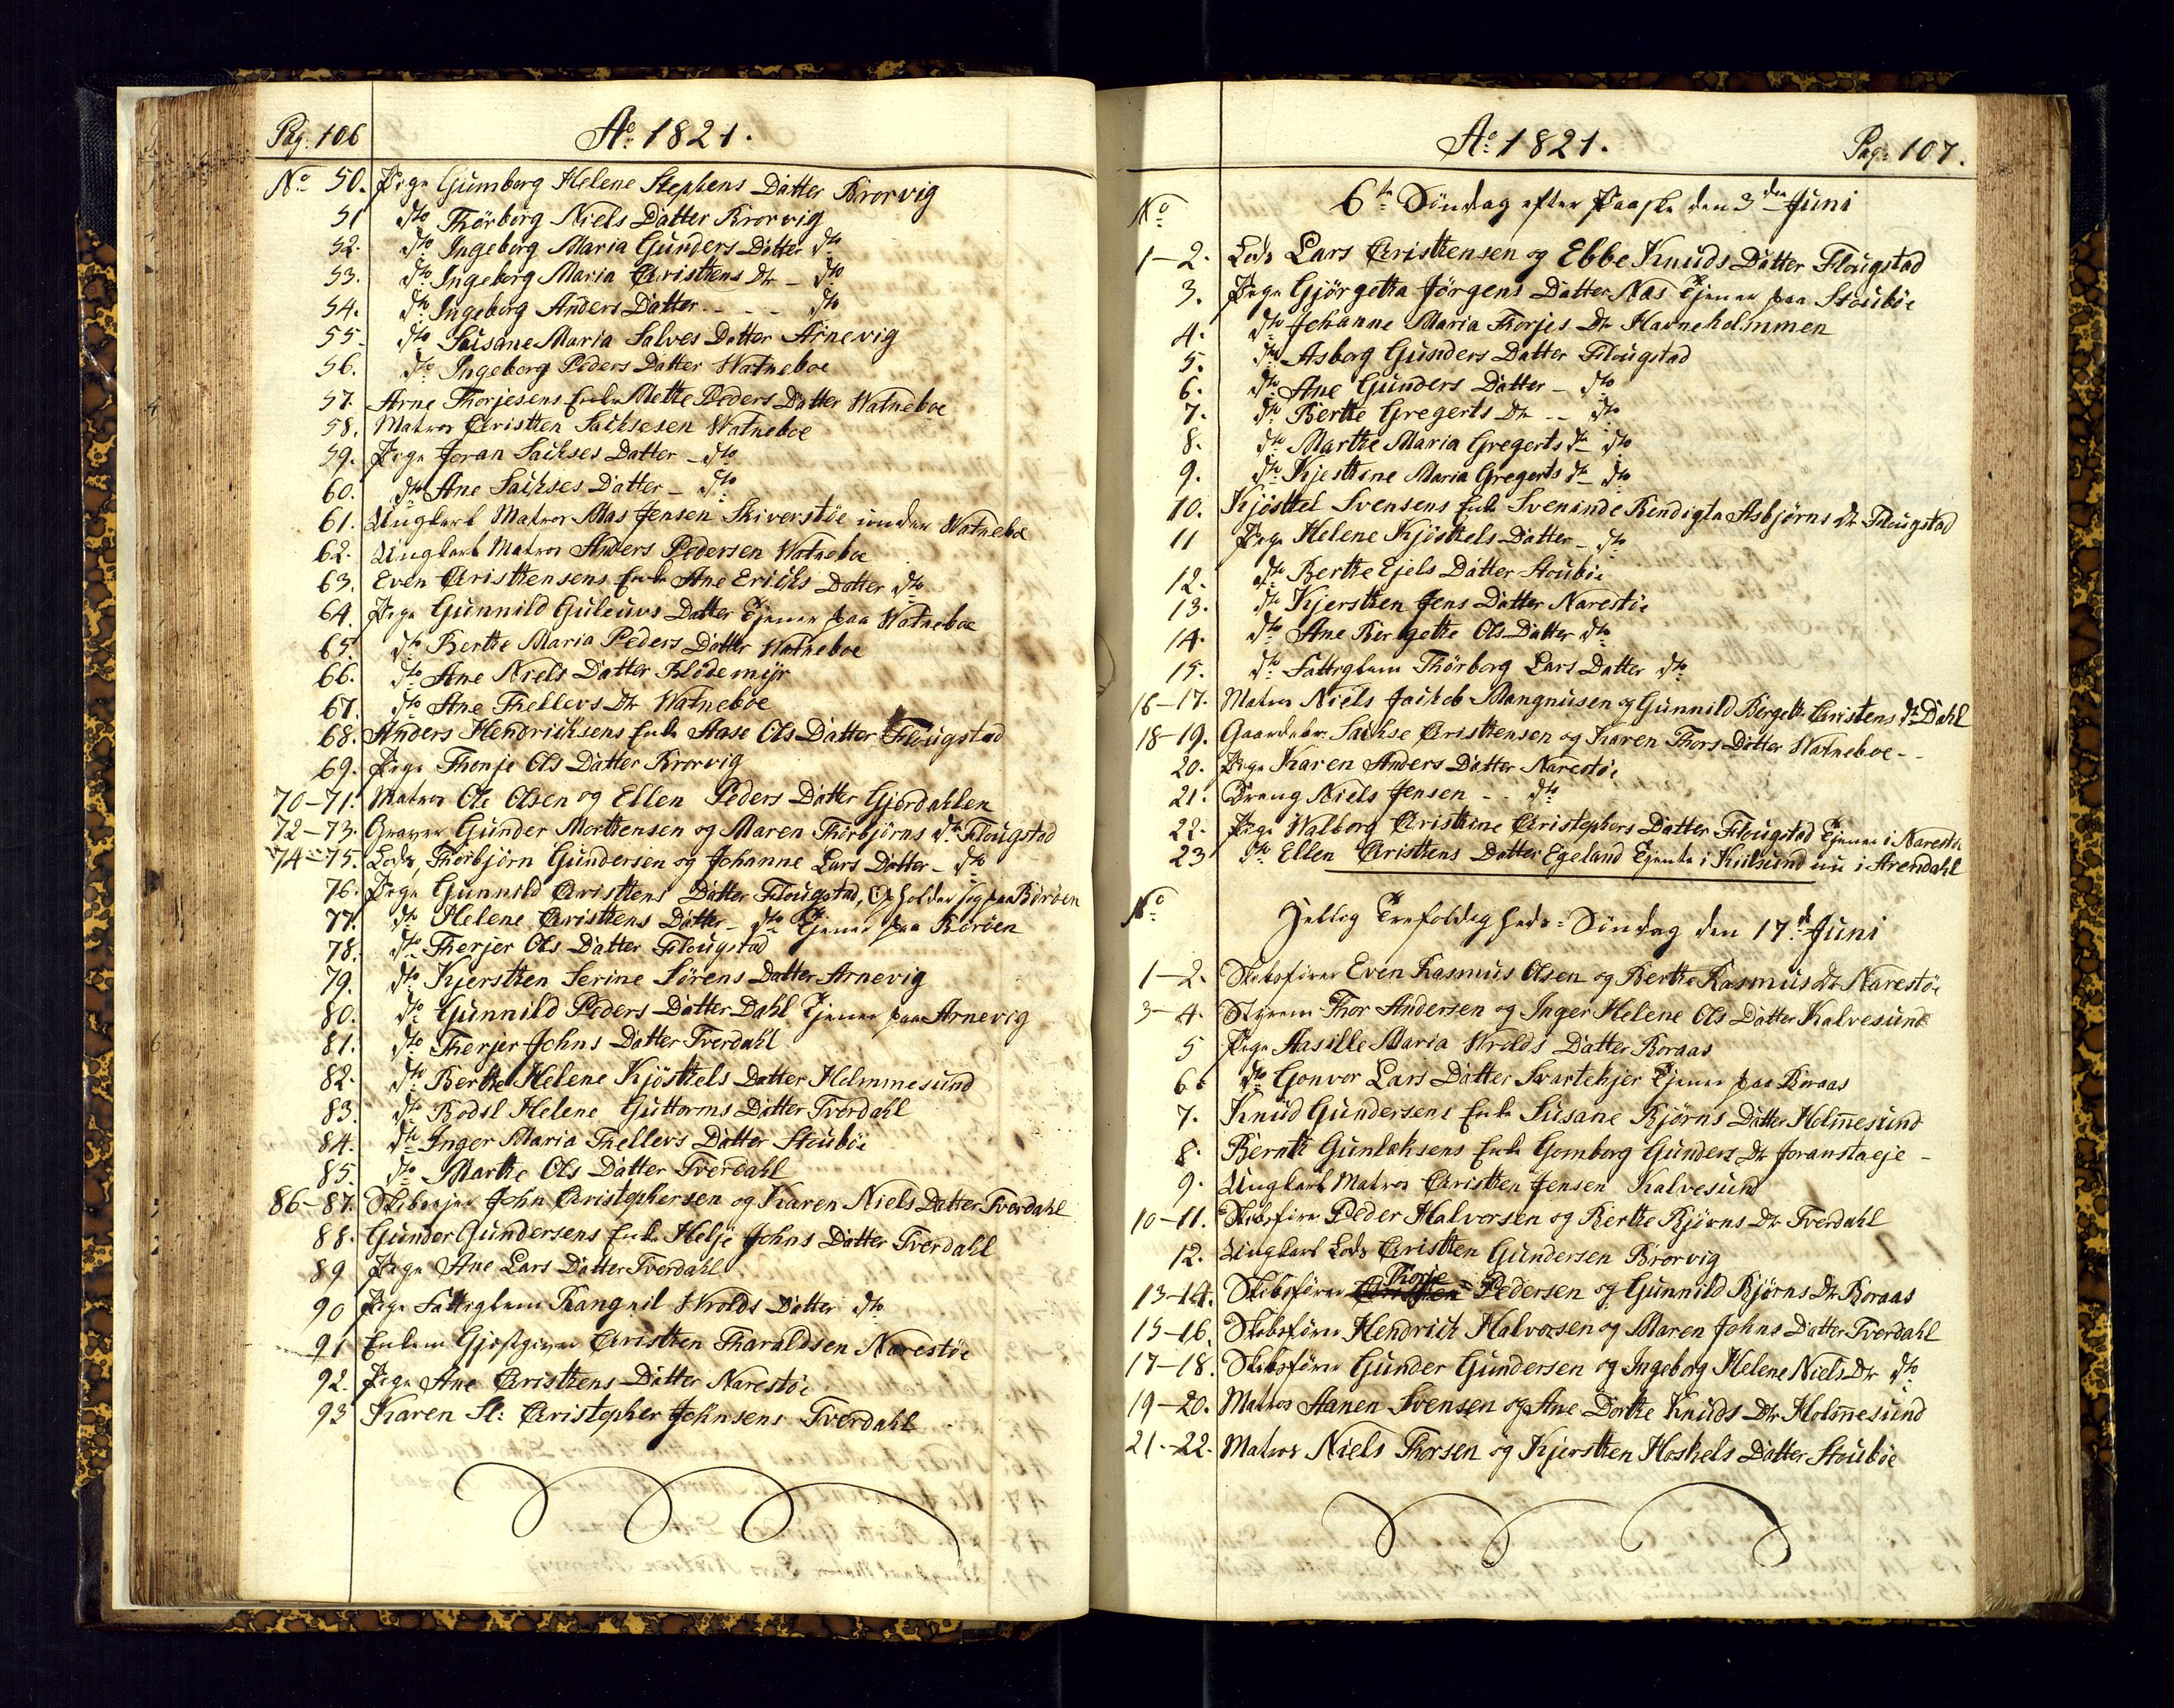 Pag: 106
Ao 1821.
No 50. Pige Gumborg Helene Stephens Datter Brorvig
51 dto Thörborg Niels Datter Brorvig
52. dto Ingeborg Maria Gunders Datter dto
53. dto Ingeborg Maria Christens Dtr - dto
54. dto Ingeborg Anders Datter - - - dto
55. dto Susane Maria Salves Datter Arnevig
56. dto Ingeborg Peders Datter Watneboe
57. Arne Thorjesens Enke Mette Peders Datter Watneboe
58. Matros Christen Sachsesen Watneboe
59. Pige Joran Sachses Datter - dto
60. dto Ane Sachses Datter - dto
61. Ungkarl Matros Mas Jensen Skiverstöe under Watneboe
62. Ungkarl Matros Anders Pedersen Watneboe
63. Even Christensens Enke Ane Erichs Datter dto
64. Pige Gunnild Guleuvs Datter Tjener paa Watneboe
65. dto Berthe Maria Peders Datter Watneboe
66. dto Ane Niels Datter Flödemyr
67. dto Ane Thellevs Dtr Watneboe
68. Anders Hendrichsens Enke Aase Ols Datter Flougstad
69. Pige Thonje Ols Datter Brorvig
70-71. Matros Ole Olsen og Ellen Peders Datter Gjerdahlen
72-73. Graver Gunder Morthensen og Maren Thorbjörns dtr Flougstad
74-75. Lods, Thorbjörn Gundersen og Johanne Lars Datter - dto
76. Pige Gunnild Christens Datter Flougstad, Opholder sig paa Boröen
77. dto Helene Christens Datter - dto Tjener paa Boröen
78. dto Therjer Ols Datter Flougstad
79. dto Kjersthen Serine Sörens Datter Arnevig
80. dto Gunnild Peders Datter Dahl Tjener paa Arnevig
81. dto Therjer Johns Datter Tverdahl
82. dto Berthe Helene Kjösthels Datter Helmmesund
83. dto Bodil Helene Guttorms Datter Tverdahl
84. dto Inger Maria Thellevs Datter Stouböe
85. dto Marthe Ols Datter Tverdahl
86-87. Skibsejer John Christophersen og Karen Niels Datter Tverdahl
88. Gunder Gundersens Enke Helje Johns Datter Tverdahl
89 Pige Ane Lars Datter Tverdahl
90 Pige Fattiglem Rangnil Wrolds Datter dto
91 Enkem Gjestgiver Christen Tharaldsen Narestöe
92. Pige Ane Christens Datter Narestöe
93 Karen Sl: Christopher Johnsens Tverdahl
Ao 1821.
Pag: 107.
No
6te Söndag efter Paaske den 3den Juni
1-2. Lods Lars Christensen og Ebbe Knuds Datter Flougstad
3. Pige Gjörgetha Jörgens Datter Næs Tjener paa Stouböe
4. dto Johanne Maria Thorjes Dtr Havneholmmen
5. dto Asborg Gunders Datter Flougstad
6. dto Ane Gunders Datter - dto
7. dto Berthe Gregerts Dtr - - dto
8. dto Marthe Maria Gregerts dtr dto
9. dto Kjesthine Maria Gregerts dtr dto
10. Kjösttel Svensens Enke Sveninde Bendigta Asbjörns dtr Flougstad
11 Pige Helene Kjösthels Datter - dto
12. dto Berthe Ejels Datter Stouböe
13. dto Kjersthen Jens Datter Narestöe
14. dto Ane Bergethe Ols Datter dto
15. dto Fattiglem Thörborg Lars Datter dto
16-17. Matros Niels Jachob Mangnusen og Gunnild Bergethe Christens dtr Dahl
18-19. Gaardebr. Sachse Christensen og Karen Thors Datter Watneboe - -
20. Pige Karen Anders Datter Narestöe
21. Dreng Niels Jensen - - dto
22. Pige Walborg Christine Christophers Datter Flougstad Tjener i Narestöe
23 dto Ellen Christens Datter Egeland Tjente i Kiilsund nu i Arendahl
No
Hellig Trefoldigheds-Söndag den 17de Juni
1-2. Skibsförer Even Rasmus Olsen og Berthe Rasmus Dtr Narestöe
3-4. Styrm. Thor Andersen og Inger Helene Ols Datter Kalvesund
5 Pige Aasille Maria Wrolds Datter Boraas
6 dto Gonvor Lars Datter Svartekjer Tjener paa Boraas
7. Knud Gundersens Enke Susane Bjørns Datter Holmesund
8. Bernth Gunlaksens Enke Gomborg Gunders Dtr Joranstæje -
9. Ungkarl Matros Christen Jensen Kalvesund
10-11. Skibsförer Peder Halvorsen og Berthe Bjørns Dtr Tverdahl
12. Ungkarl Lods Christen Gundersen Brorvig
13-14. Skibsförer Thorje Pedersen og Gunnild Bjørns Dtr Boraas
15-16. Skibsförer Hendrich Halvorsen og Maren Johns Datter Tverdahl
17-18. Skibsförer Gunder Gundersen og Ingeborg Helene Niels Dtr dto
19-20. Matros Aanen Svensen og Ane Dorthe Knuds Dtr Holmesund
21-22. Matros Niels Thorsen og Kjersthen Hoskels Datter Stouböe